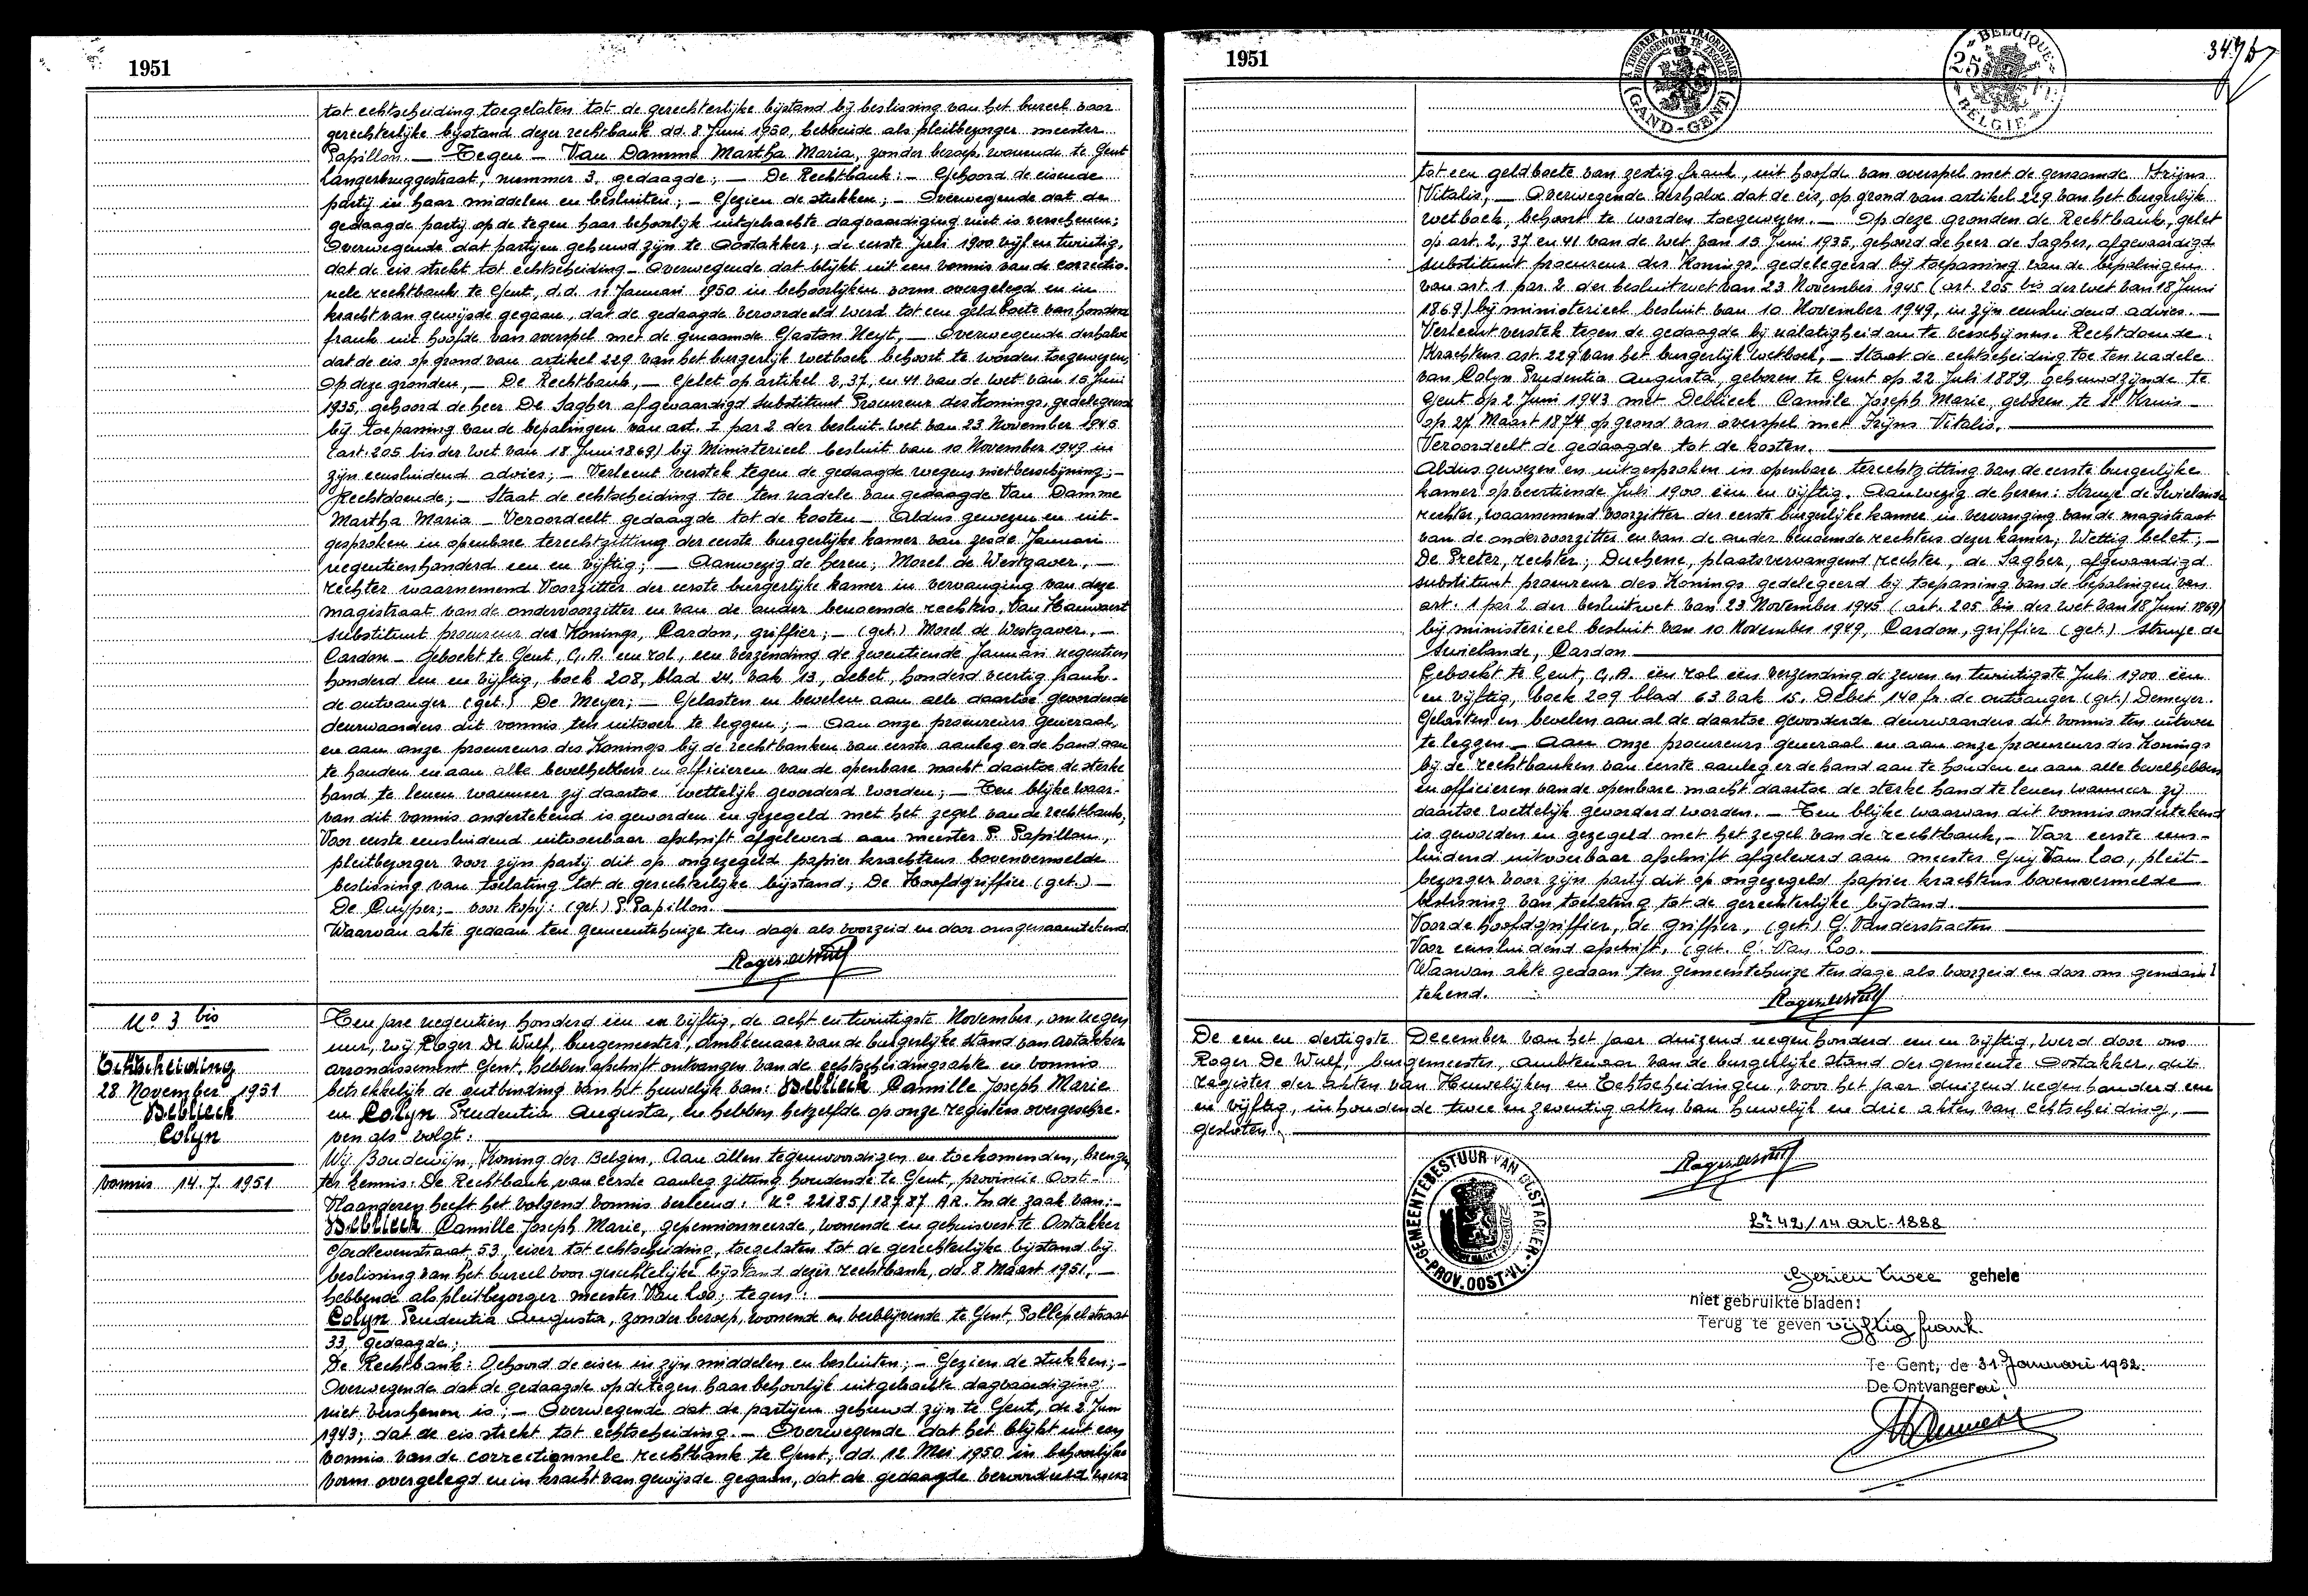 1951
tot echtscheiding toegelaten tot de gerechterlijke bijstand bij beslissing van het bureel voor
gerechterlijke bijstand dezer rechtbank dd. 8 Juni 1950, hebbende als pleitbezorger meester
Papillon. — Tegen — Van Damme Martha Maria, zonder beroep, wonende te Gent
Langerbruggestraat, nummer 3, gedaagde; — De Rechtbank: — Gehoord de eisende
partij in haar middelen en besluiten; — Gezien de stukken; — Overwegende dat de
gedaagde partij op de tegen haar behoorlijk uitgebrachte dagvaardiging niet is verschenen;
Overwegende dat partijen gehuwd zijn te Oostakker, de eerste Juli 1900 vijf en twintig,
dat de eis strekt tot echtscheiding — Overwegende dat blijkt uit een vonnis van de correctio-
nele rechtbank te Gent, d.d. 11 Januari 1950 in behoorlijken vorm overgelegd en in
kracht van gewijsde gegaan, dat de gedaagde veroordeeld werd tot een geldboete van honderd
frank uit hoofde van overspel met de genaamde Gaston Heyt, — Overwegende derhalve
dat de eis op grond van artikel 229 van het burgerlijk wetboek behoort te worden toegewezen;
Op deze gronden, — De Rechtbank, — Gelet op artikel 2, 37, en 41 van de wet van 15 Juni
1935, gehoord de heer De Sagher afgevaardigd substituut Procureur des Konings, gedelegeerd
bij toepassing van de bepalingen van art. 1 par 2 der besluit wet van 23 November 1945
(art. 205 bis der wet van 18 Juni 1869) bij Ministerieel besluit van 10 November 1949 in
zijn eensluidend advies; — Verleent verstek tegen de gedaagde wegens niet verschijning; —
Rechtdoende; — Staat de echtscheiding toe ten nadele van gedaagde Van Damme
Martha Maria — Veroordeelt gedaagde tot de kosten — Aldus gewezen en uit-
gesproken in openbare terechtzitting der eerste burgerlijke kamer van zesde Januari
negentienhonderd een en vijftig; — Aanwezig de heren; Morel de Westgaver, —
rechter waarnemend Voorzitter der eerste burgerlijke kamer in vervanging van deze
magistraat van de ondervoorzitter en van de ander benoemde rechters, Van Hauwaert
substituut procureur des Konings, Cardon, griffier; — (get.) Morel de Westgaver, —
Cardon — Geboekt te Gent, G.A. een rol, een verzending de zeventiende Januari negentien
honderd een en vijftig, boek 208, blad 24, vak 13, debet, honderd veertig frank.
de ontvanger (get.) De Meyer; — Gelasten en bevelen aan alle daartoe gevorderde
deurwaarders dit vonnis ten uitvoer te leggen; — Aan onze procureurs generaal,
en aan onze procureurs des Konings bij de rechtbanken van eerste aanleg er de hand aan
te houden en aan alle bevelhebbers en officieren van de openbare macht daartoe de sterke
hand te lenen wanneer zij daartoe wettelijk gevorderd worden; — Ten blijke waar-
van dit vonnis ondertekend is geworden en gezegeld met het zegel van de rechtbank;
Voor eerste eensluidend uitvoerbaar afschrift afgeleverd aan meester P. Papillon,
pleitbezorger voor zijn partij dit op ongezegeld papier krachtens bovenvermelde
beslissing van toelating tot de gerechterlijke bijstand; De Hoofdgriffier (get.) —
De Cuyper; — voor kopij: (get.) P. Papillon.
Waarvan akte gedaan ten gemeentehuize ten dage als voorzeid en door ons genaamtekend.
Roger De Wulf
N° 3 bis
Echtscheiding
28 November 1951
Deblieck
Colyn
vonnis 14.7.1951
Ten jare negentien honderd één en vijftig, de acht en twintigste November, om negen
uur, wij Roger De Wulf, burgemeester, ambtenaar van de burgerlijke stand van Oostakker
arrondissement Gent, hebben afschrift ontvangen van de echtscheidingsakte en vonnis
betrekkelijk de ontbinding van het huwelijk van: Deblieck Camille Joseph Marie
en Colyn Prudentia Augusta, en hebben hetzelfde op onze registers overgeschre-
ven als volgt:
Wij Boudewijn, Koning der Belgen, Aan allen tegenwoordigen en toekomenden, brengen
ter kennis: De Rechtbank van eerste aanleg zitting houdende te Gent, provincie Oost-
Vlaanderen heeft het volgend vonnis verleend: N° 22185/18787 A.R. In de zaak van: —
Deblieck Camille Joseph Marie, gepensionneerde, wonende en gehuisvest te Oostakker
Goedlevenstraat 53, eiser tot echtscheiding, toegelaten tot de gerechterlijke bijstand bij
beslissing van het bureel voor gerechtelijke bijstand dezer rechtbank, dd. 8 Maart 1951, —
hebbende als pleitbezorger meester Van Loo; tegen:
Colyn Prudentia Augusta, zonder beroep, wonend en verblijvende te Gent, Pollepelstraat
33, gedaagde;
De Rechtbank: Gehoord de eiser in zijn middelen en besluiten; — Gezien de stukken; —
Overwegende dat de gedaagde op de tegen haar behoorlijk uitgebrachte dagvaardiging
niet verschenen is; — Overwegende dat de partijen gehuwd zijn te Gent, de 2 Juni
1943; dat de eis strekt tot echtscheiding. — Overwegende dat het blijkt uit een
vonnis van de correctionnele rechtbank te Gent, dd. 12 Mei 1950 in behoorlijke
vorm overgelegd en in kracht van gewijsde gegaan, dat de gedaagde veroordeeld werd
1951
A TIMBRER A L'EXTRAORDINAIRE
BUITENGEWOON TE ZEGELEN
(GAND-GENT)
BELGIQUE
25 FR.
BELGIE
tot een geldboete van zestig frank, uit hoofde van overspel met de genaamde Strijns
Vitalis, — Overwegende derhalve dat de eis, op grond van artikel 229 van het burgerlijk
wetboek, behoort te worden toegewezen. — Op deze gronden de Rechtbank, gelet
op art. 2, 37 en 41 van de wet van 15 Juni 1935, gehoord de heer de Sagher, afgevaardigd
substituut procureur des Konings, gedelegeerd bij toepassing van de bepalingen
van art. 1 par 2 der besluitwet van 23 November 1945 (art. 205 bis der wet van 18 Juni
1869) bij ministerieel besluit van 10 November 1949, in zijn eensluidend advies. —
Verleent verstek tegen de gedaagde bij nalatigheid om te verschijnen. Rechtdoende.
Krachtens art. 229 van het burgerlijk wetboek, — Staat de echtscheiding toe ten nadele
van Colyn Prudentia Augusta, geboren te Gent op 22 Juli 1889, gehuwd zijnde te
Gent op 2 Juni 1943 met Deblieck Camile Joseph Marie, geboren te St Kruis —
op 27 Maart 1874 op grond van overspel met Vitalis.
Veroordeelt de gedaagde tot de kosten.
Aldus gewezen en uitgesproken in openbare terechtzitting van de eerste burgerlijke
kamer op veertiende Juli 1900 één en vijftig. Aanwezig de heren: Struye de Swielande
rechter, waarnemend voorzitter der eerste burgerlijke kamer in vervanging van de magistraat
van de ondervoorzitter en van de ander benoemde rechters dezer kamer, Wettig belet; —
De Preter, rechter; Duchene, plaatsvervangend rechter, de Sagher, afgevaardigd
substituut procureur des Konings gedelegeerd bij toepassing van de bepalingen van
art. 1 par 2 der besluitwet van 23 November 1945 (art. 205 bis der wet van 18 Juni 1869)
bij ministerieel besluit van 10 November 1949, Cardon, griffier (get.) Struye de
Swielande, Cardon
Geboekt te Gent, G.A. één rol één verzending de zeven en twintigste Juli 1900 één
en vijftig, boek 209 blad 63 vak 15. Debet 140 fr. de ontvanger (get.) Demeyer.
Gelasten en bevelen aan al de daartoe gevorderde deurwaarders dit vonnis ten uitvoer
te leggen — Aan onze procureurs generaal en aan onze procureurs des Konings
bij de rechtbanken van eerste aanleg er de hand aan te houden en aan alle bevelhebbers
en officieren van de openbare macht daartoe de sterke hand te lenen wanneer zij
daartoe wettelijk gevorderd worden. — Ten blijke waarvan dit vonnis ondertekend
is geworden en gezegeld met het zegel van de rechtbank, — Voor eerste eens-
luidend uitvoerbaar afschrift afgeleverd aan meester Guy Van Loo, pleit-
bezorger voor zijn partij dit op ongezegeld papier krachtens bovenvermelde
beslissing van toelating tot de gerechterlijke bijstand.
Voor de hoofdgriffier, de griffier, (get.) G. Vanderstraeten
Voor eensluidend afschrift, (get. G. Van Loo.
Waarvan akte gedaan ten gemeentehuize ten dage als voorzeid en door ons genaam-
tekend.
Roger De Wulf
De een en dertigste December van het jaar duizend negenhonderd een en vijftig, werd door ons
Roger De Wulf, burgemeester, ambtenaar van de burgerlijke stand der gemeente Oostakker, dit
register der akten van Huwelijken en Echtscheidingen, voor het jaar duizend negenhonderd een
en vijftig, inhoudende twee en zeventig akten van huwelijk en drie akten van echtscheiding, —
gesloten.
Roger De Wulf
GEMEENTEBESTUUR VAN OOSTACKER
PROV. OOST-VL.
42/14 art. 1888
Gezien twee gehele
niet gebruikte bladen:
Terug te geven vijftig frank.
Te Gent, de 31 Januari 1952.
De Ontvanger